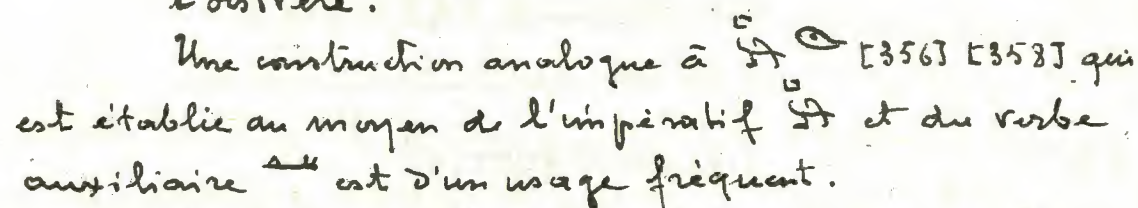 l'oisiveté.
Une construction analogue à 𓅓 𓁹 [356] [358] qui
est établie au moyen de l'impératif 𓅓 et du verbe
auxiliaire 𓂞 est d'un usage fréquent.